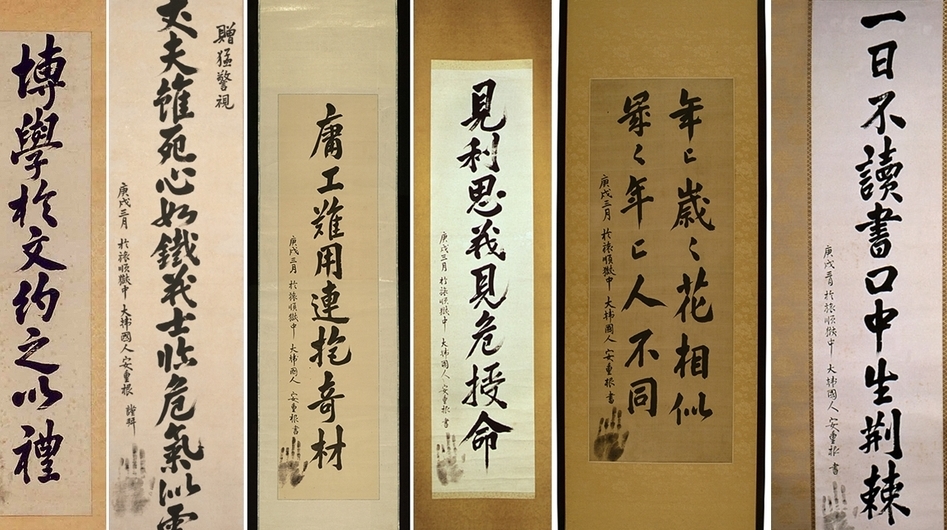 博學於文約之以禮
贈猛警視
丈夫雖死心如鐵義士臨危氣似雲
庚戌三月 於旅順獄中 大韓國人 安重根 謹拜
庸工難用連抱奇材
庚戌三月 於旅順獄中 大韓國人 安重根 書
見利思義見危授命
庚戌三月 於旅順獄中 大韓國人 安重根 書
年々歲々花相似
歲々年々人不同
庚戌三月 於旅順獄中 大韓國人 安重根 書
一日不讀書口中生荊棘
庚戌三月 於旅順獄中 大韓國人 安重根 書